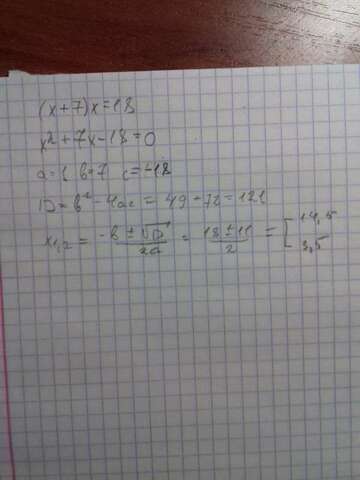 (x+7)x=18
x²+7x-18=0
a=1 b=7 c=-18
D=b²-4ac = 49+72=121
x₁,₂ = -b±√D / 2a = 18±11 / 2 = [ 14,5
3,5